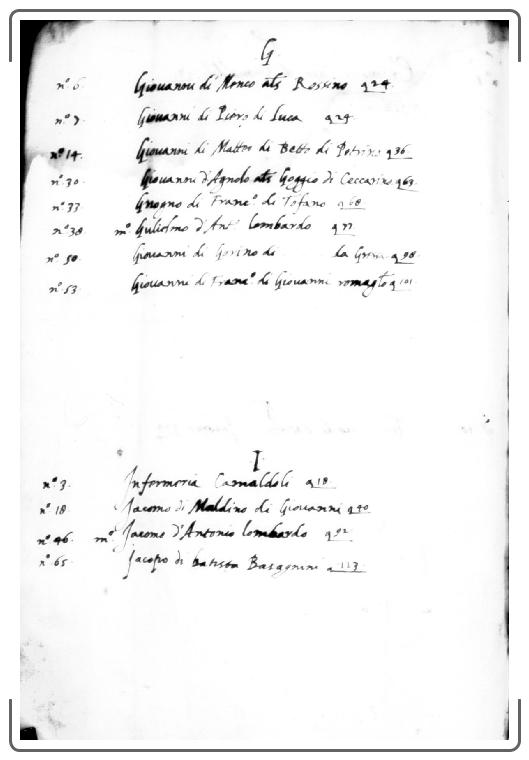 G
nº 6. Giovanni di Menco als Rossino q 24
nº 7. Giovanni di Piero di Luca q 24
nº 14. Giovanni di Matteo di Betto di Petrino q 36
nº 30 Giovanni d'Agnolo als Goggio di Ceccarino q 63
nº 33 di Franc.º di Tofano q 68
nº 38 mº Guliolmo d'Antº lombardo q 77
nº 50 Giovanni di Gorino di la q 98
nº 53. Giovanni di Franc.º di Giovanni q 101
I
nº 3. Infermeria Camaldoli q 18
nº 18 Jacomo di Maldino di Giovanni q 40
nº 46 mº Jacomo d'Antonio lombardo q 92
nº 65 Jacopo di batista q 113